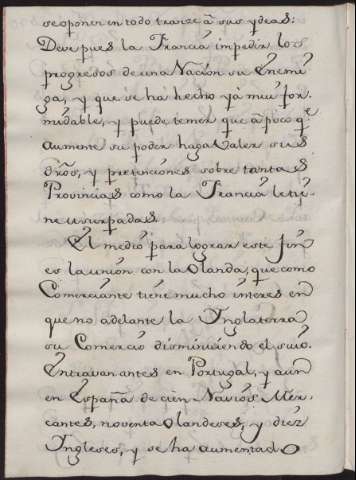 se oponen en todo tranze â sus ydeas:
Deve pues la Francia impedir los
progresos de una Nación su Enemi-
ga, y que se há hecho yá mui for-
midable, y puede temer que â poco qe
aumente su poder haga valer sus
dros, y pretenciones sobre tantas
Provincias como la Francia le tie-
ne usurpadas.
El medio para lograr este fin
es la unión con la Olanda, que como
Comerciante tiene mucho interes en
que no adelante la Inglaterra
su Comercio disminuiendo el suio.
Entravan antes en Portugal, y aun
en España de cien Navios Mer-
cantes, noventa Olandeses, y diez
Ingleses, y se ha aumentado